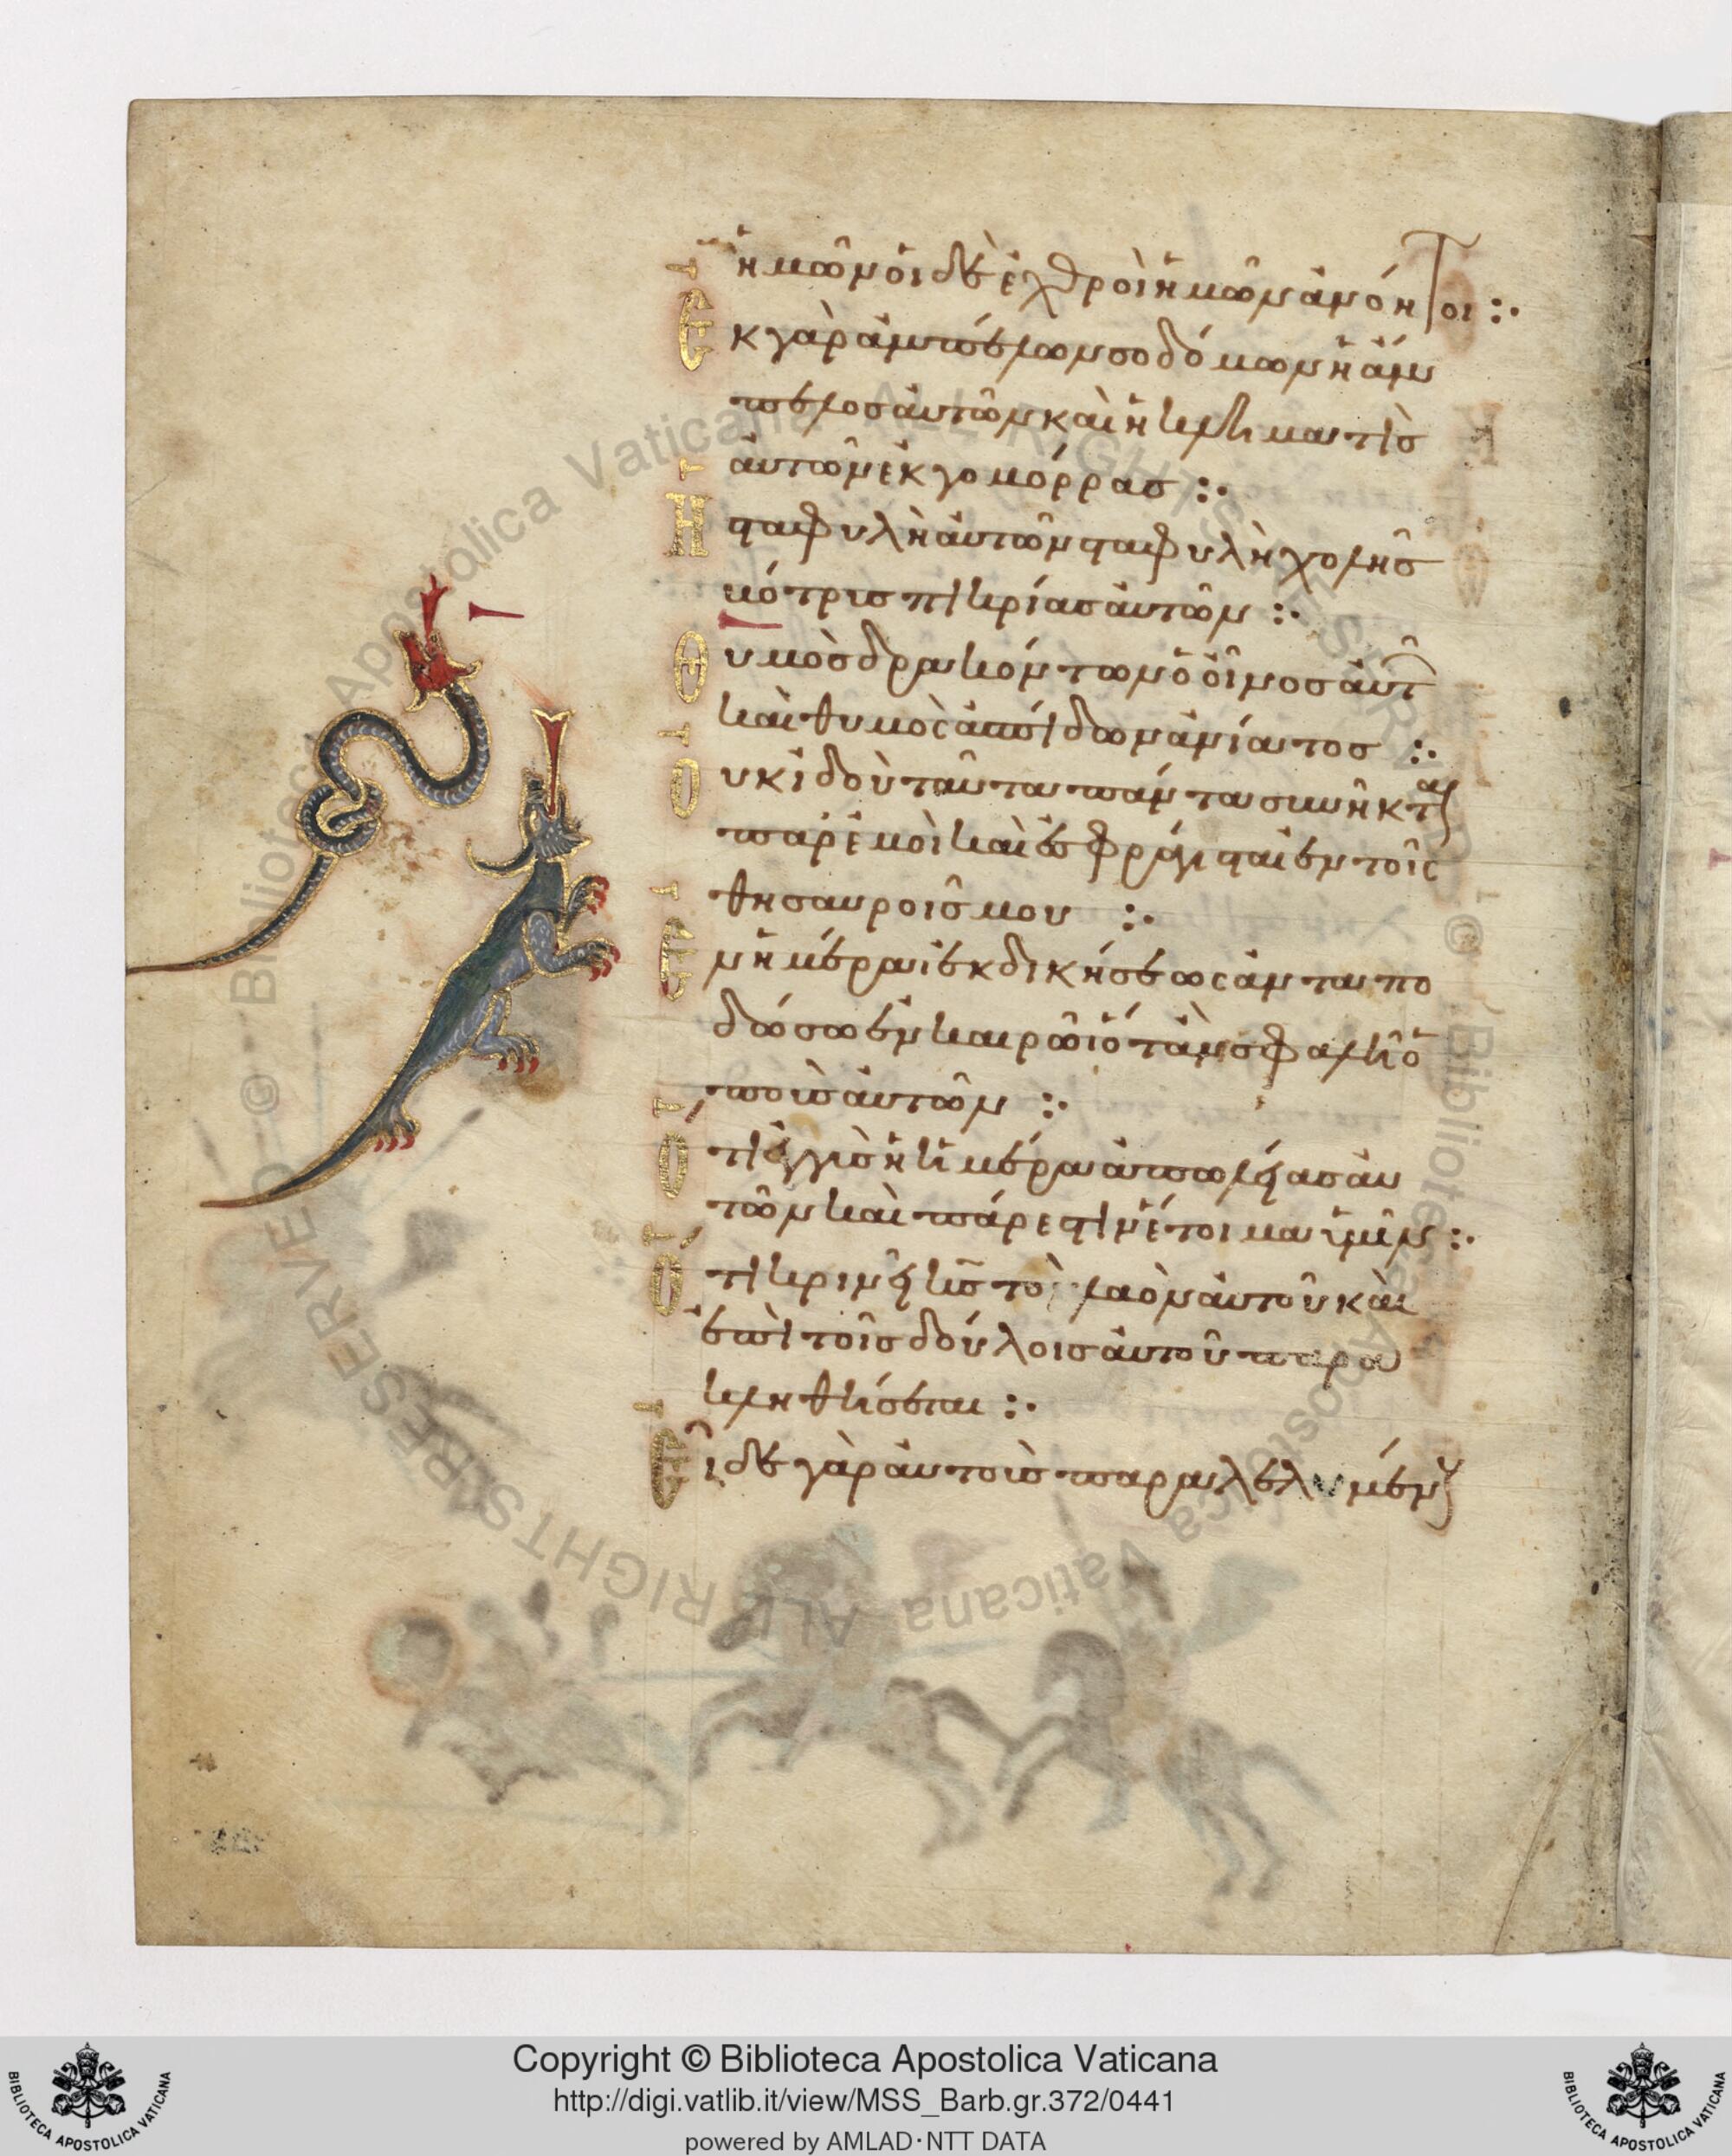 ἡμῶν οἱ δὲ ἐχθροὶ ἡμῶν ἀνόητοι :·
Ἐκ γὰρ ἀμπέλων σοδόμων ἡ ἄμ
πελος αὐτῶν καὶ ἡ κληματὶς
αὐτῶν ἐκ γομόρρας :·
Ἡ σταφυλὴ αὐτῶν σταφυλὴ χολῆς
βότρυς πικρίας αὐτῶν :·
Θυμὸς δρακόντων ὁ οἶνος αὐτῶ
καὶ θυμὸς ἀσπίδων ἀνίατος :·
Οὐκ ἰδοὺ ταῦτα πάντα συνῆκται
παρ' ἐμοὶ καὶ ἐσφράγισται ἐν τοῖς
θησαυροῖς μου :·
Ἐν ἡμέρα ἐκδικήσεως ἀνταπο
δώσω ἐν καιρῶ ὅταν σφαλῆ ὁ
ποὺς αὐτῶν :·
Ὅτι ἐγγὺς ἡ ἡμέρα ἀπωλείας αὐ
τῶν καὶ πάρεστιν ἕτοιμα ὑμῖν :·
Ὅτι κρινεῖ κς τὸν λαὸν αὐτοῦ καὶ
ἐπὶ τοῖς δούλοις αὐτοῦ παρα
κληθήσεται :·
Εἶδε γὰρ αὐτοὺς παραλελυμένους
Copyright © Biblioteca Apostolica Vaticana
http://digi.vatlib.it/view/MSS_Barb.gr.372/0441
powered by AMLAD·NTT DATA
BIBLIOTECA APOSTOLICA VATICANA
BIBLIOTECA APOSTOLICA VATICANA
© Biblioteca Apostolica Vaticana ALL RIGHTS RESERVED
© Biblioteca Apostolica Vaticana ALL RIGHTS RESERVED